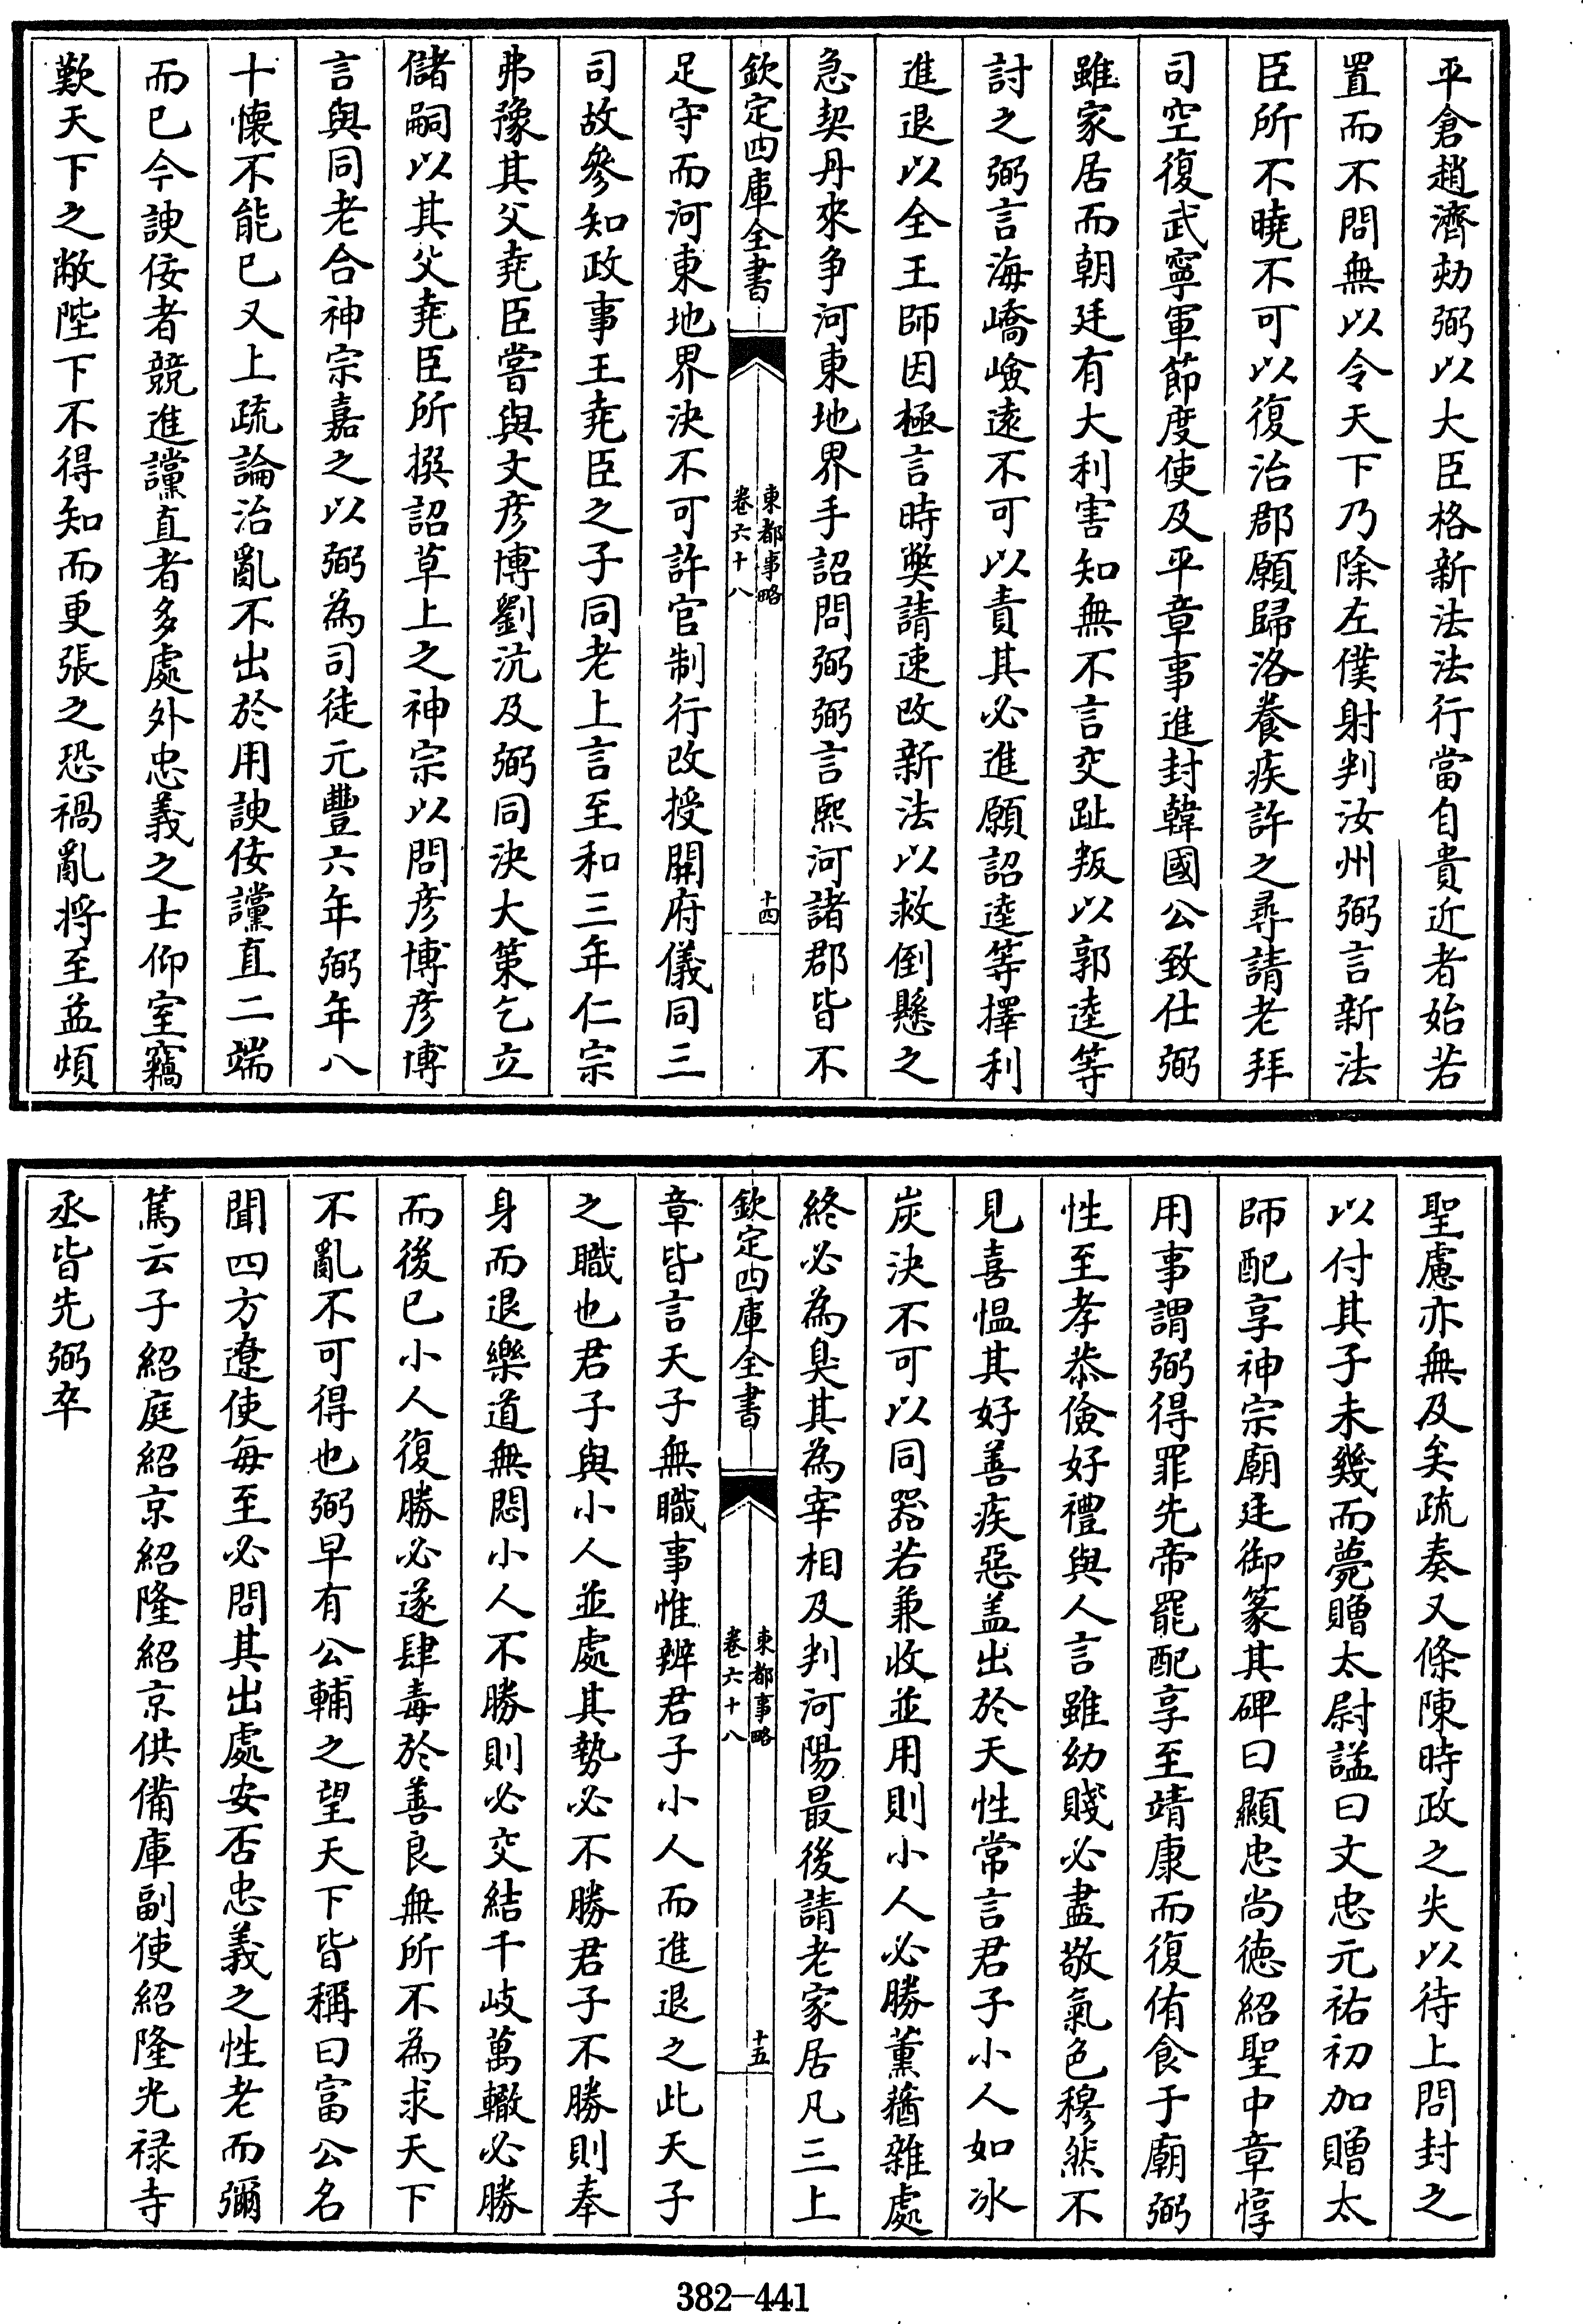 平倉趙濟劾弼以大臣格新法法行當自貴近者始若
置而不問無以令天下乃除左僕射判汝州弼言新法
臣所不曉不可以復治郡願歸洛養疾許之尋請老拜
司空復武寧軍節度使及平章事進封韓國公致仕弼
雖家居而朝廷有大利害知無不言交趾叛以郭逵等
討之弼言海嶠嶮遠不可以責其必進願詔逵等擇利
進退以全王師因極言時獘請速改新法以救倒懸之
急契丹來爭河東地界手詔問弼弼言熙河諸郡皆不
欽定四庫全書
東都事略
卷六十八
十四
足守而河東地界決不可許官制行改授開府儀同三
司故參知政事王堯臣之子同老上言至和三年仁宗
弗豫其父堯臣嘗與文彥博劉沆及弼同決大策乞立
儲嗣以其父堯臣所撰詔草上之神宗以問彥博彥博
言與同老合神宗嘉之以弼為司徒元豐六年弼年八
十懷不能已又上疏論治亂不出於用諛佞讜直二端
而已今諛佞者競進讜直者多處外忠義之士仰室竊
歎天下之敝陛下不得知而更張之恐禍亂將至益煩
聖慮亦無及矣疏奏又條陳時政之失以待上問封之
以付其子未幾而薨贈太尉謚曰文忠元祐初加贈太
師配享神宗廟廷御篆其碑曰顯忠尚德紹聖中章惇
用事謂弼得罪先帝罷配享至靖康而復侑食于廟弼
性至孝恭儉好禮與人言雖幼賤必盡敬氣色穆然不
見喜愠其好善疾惡盖出於天性常言君子小人如冰
炭決不可以同器若兼收並用則小人必勝薰蕕雜處
終必為臭其為宰相及判河陽最後請老家居凡三上
欽定四庫全書
東都事略
卷六十八
十五
章皆言天子無職事惟辨君子小人而進退之此天子
之職也君子與小人並處其勢必不勝君子不勝則奉
身而退樂道無悶小人不勝則必交結千岐萬轍必勝
而後已小人復勝必遂肆毒於善良無所不為求天下
不亂不可得也弼早有公輔之望天下皆稱曰富公名
聞四方遼使每至必問其出處安否忠義之性老而彌
篤云子紹庭紹京紹隆紹京供備庫副使紹隆光祿寺
丞皆先弼卒
382-441